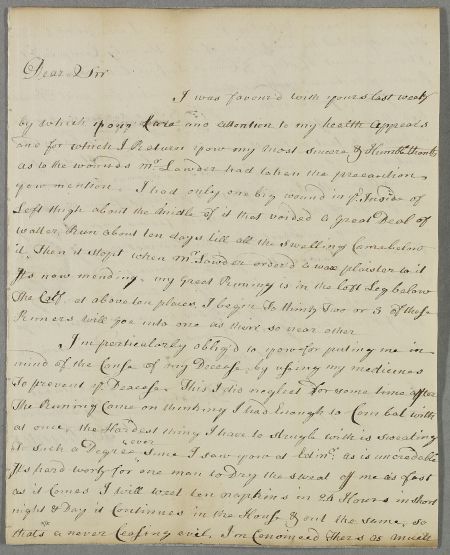 Dear Sir
I was favour'd with yours last week
by which your care and attention to my health appears
and for which I Return yow my most sincere & Humble thanks
as to the wounds Mr. Lawder had taken the precaution
yow mention. I had only one big wound in ye. Inside of
Left thigh about the midle of it that voided a Great Deal of
watter, Run about ten days till all the swelling came below
it, Then it stopt when Mr. Lawder order'd a wax plaister to it
It's now mending. my Great Runing is in the left Leg below
The Calf at above ten places. I begin To think Two or 3 of these
Runers will goe into one as there so near other
I'm particularly oblig'd to yow for puting me in
mind of the Cause of my Decease, by using my medicines
To prevent ye. Decease. This I did neglect for some time after
The Runing Came on thinking I had Enough to Combat with
at once, the Hardest thing I have to strugle with is sweating
to such a Degree ever since I saw yow at Edinr. as is uncredable
It's hard work for one man to Dry the sweat off me as fast
as it Comes I will weet ten napkins in 24 Hours in short
night & Day it Continues in the House & out the same, so
that's a never Ceasing evil. I'm Convinced Thers as much